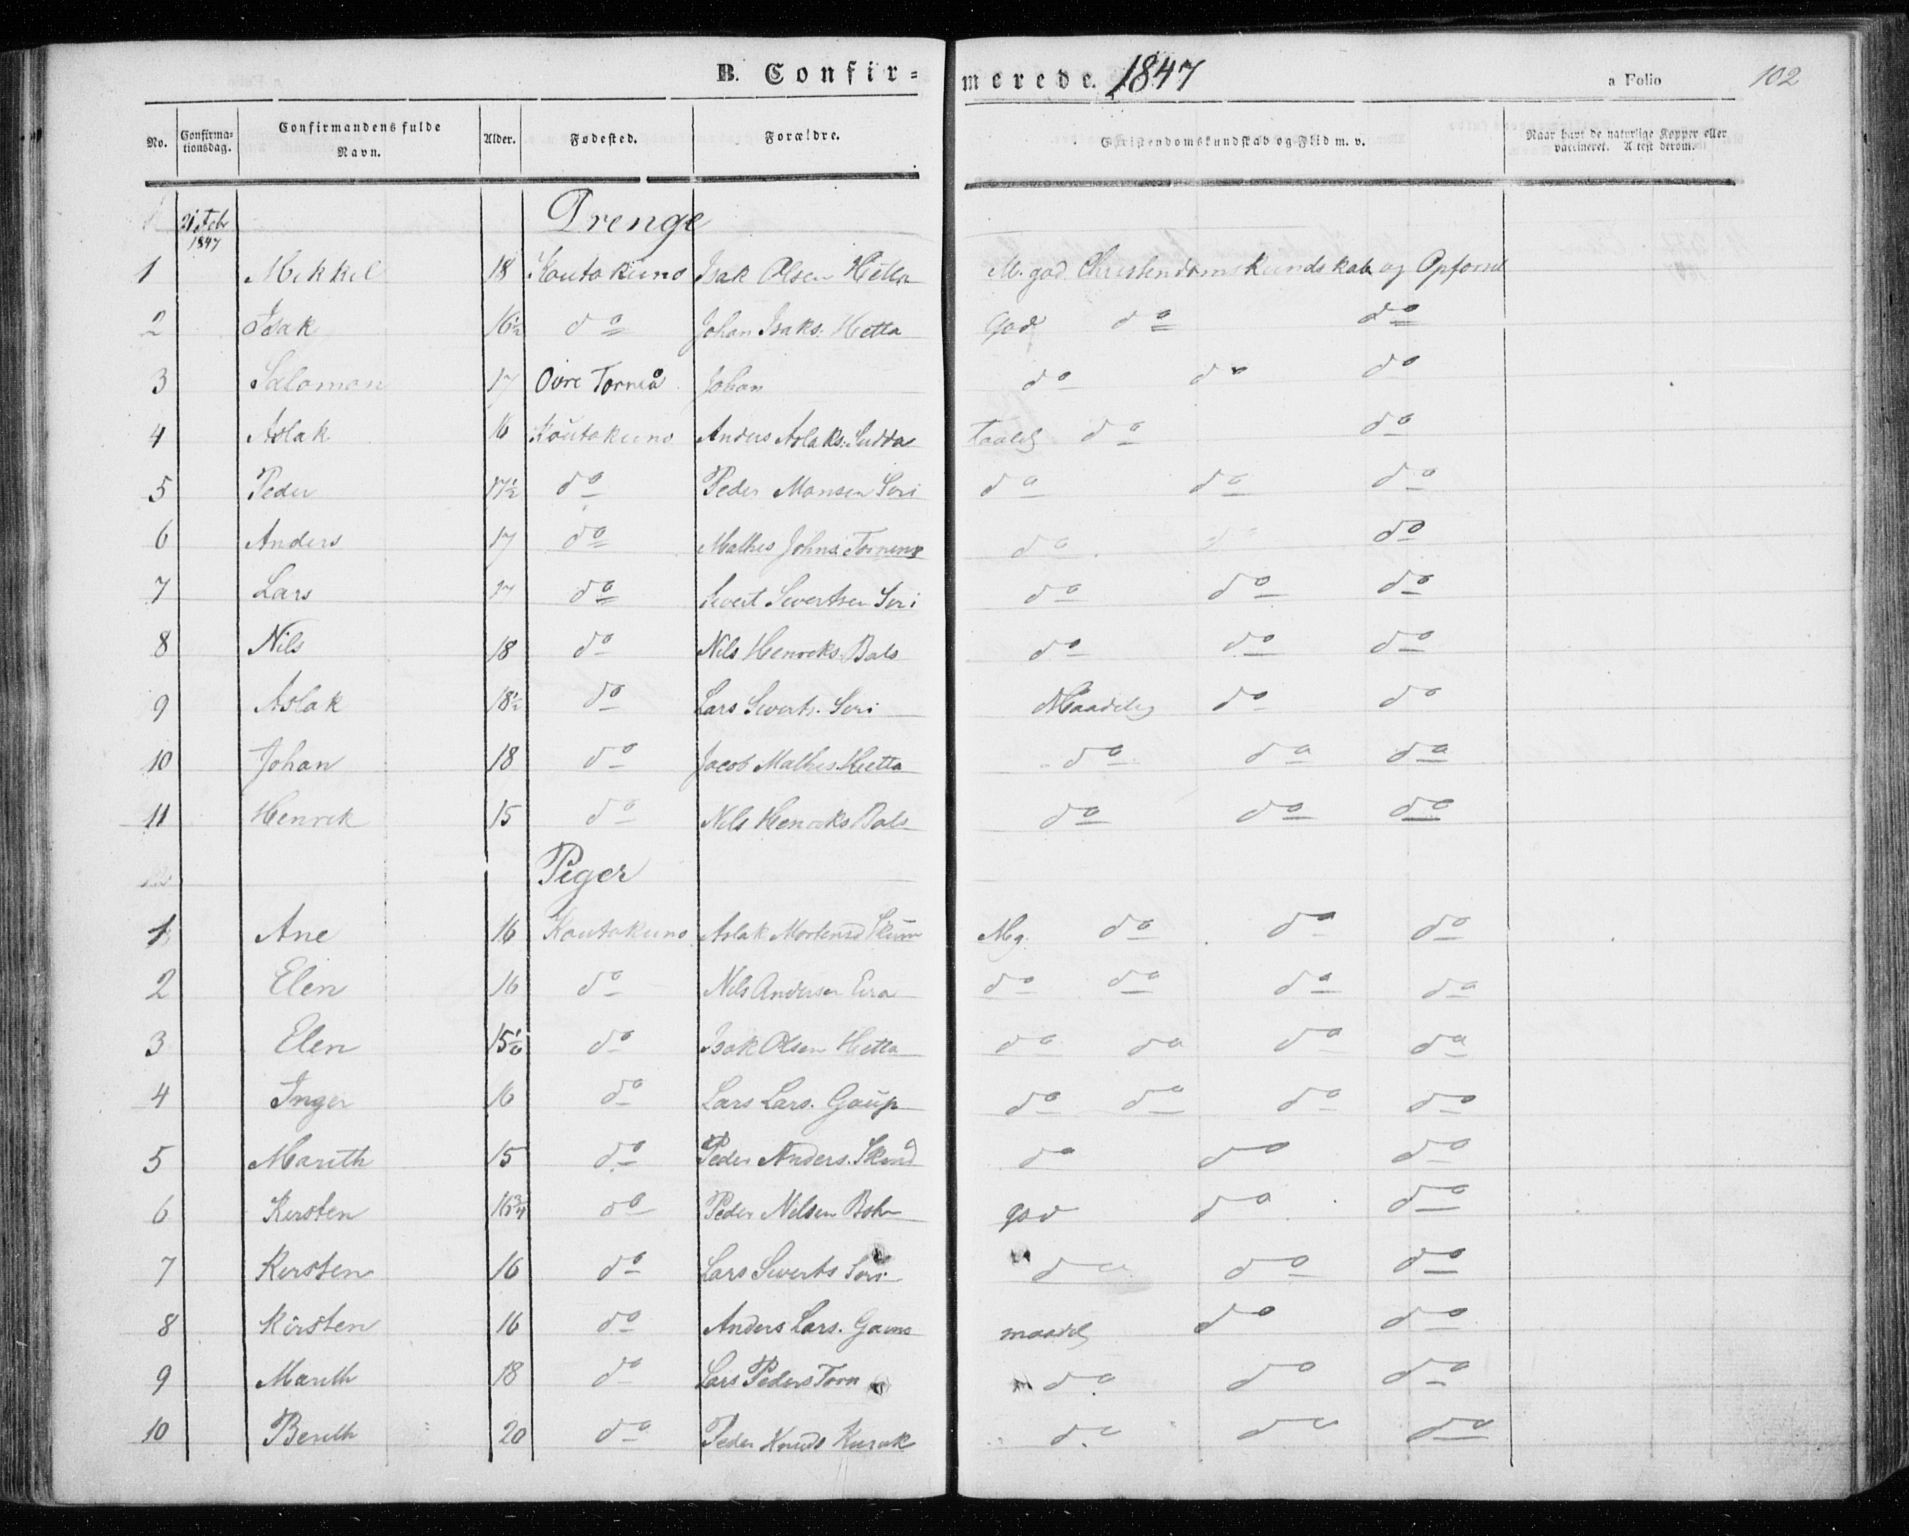 B. Confirmerede. 1847 a Folio 102
No. Confirmationsdag. Confirmandens fulde Navn. Alder. Fødested. Forældre. Christendomskundskab og Flid m. v. Naar havt de naturlige Kopper eller vaccineret. Attest derom.
21 Feb 1847 Drenge
1 Mikkel 18 Koutokeino Isak Olsen Hetta M. god Christendomskundskab og Opførsel
2 Isak 16½ do Johan Isaks. Hetta God do do
3 Salomon 17 Ovre Torneå Johan do do do
4 Aslak 16 Koutokeino Anders Aslaks. Taalelig do do
5 Peder 17½ do Peder Monsen Sori do do do
6 Anders 17 do Mathis Johns. do do do
7 Lars 17 do Sivert Sivertsen Sori do do do
8 Nils 18 do Nils Henriks. Bals do do do
9 Aslak 18½ do Lars Siverts. Sori Maadelig do do
10 Johan 18 do Jacob Mathis. Hetta do do do
11 Henrik 15 do Nils Henriks Bals do do do
Piger
1 Ane 16 Koutokeino Aslak Mortens. Skum Mg. do do do
2 Elen 16 do Nils Andersen Eira do do do do
3 Elen 15½ do Isak Olsen Hetta do do do do
4 Inger 16 do Lars Lars. Gaup do do do do
5 Marith 15 do Peder Anders. do do do
6 Kirsten 16¾ do Peder Nilsen god do do
7 Kirsten 16 do Lars Siverts Sori do do do
8 Kirsten 16 do Anders Lars. maadel do do
9 Marith 18 do Lars Peders Torn do do do
10 Berith 20 do Peder Knuds Kurak do do do